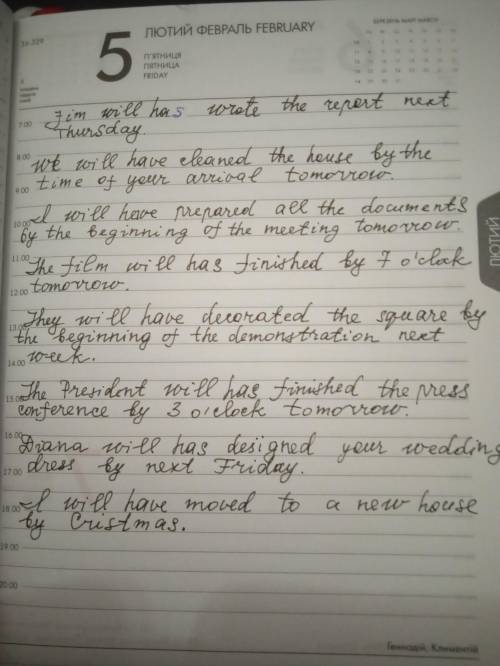 36-329
5
ЛЮТИЙ ФЕВРАЛЬ FEBRUARY
П'ЯТНИЦЯ
ПЯТНИЦА
FRIDAY
БЕРЕЗЕНЬ МАРТ MARCH
7:00 Jim will has wrote the report next
Thursday.
8:00 We will have cleaned the house by the
9:00 time of your arrival tomorrow.
10:00 I will have prepared all the documents
by the beginning of the meeting tomorrow.
11:00 The film will has finished by 7 o'clock
12:00 tomorrow.
13:00 They will have decorated the square by
the beginning of the demonstration next
14:00 week.
15:00 The President will has finished the press
conference by 3 o'clock tomorrow.
16:00 Diana will has designed your wedding
17:00 dress by next Friday.
18:00 I will have moved to a new house
by Cristmas.
19:00
20:00
ЛЮТИЙ
Геннадій, Климентій